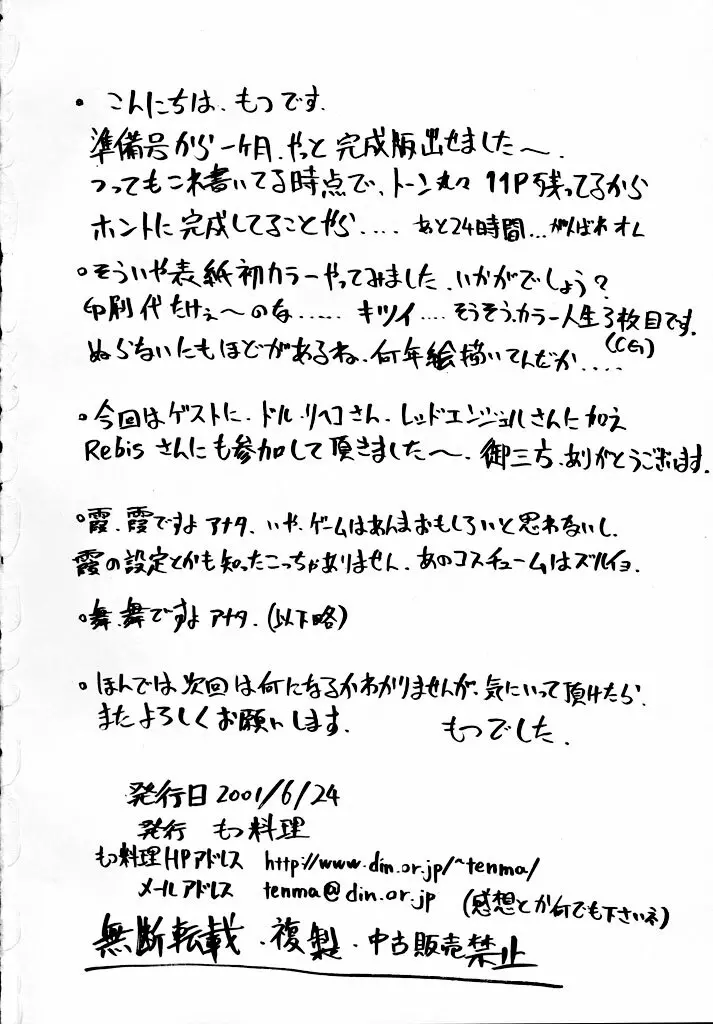 ・こんにちは、もつです.
準備号から一ヶ月、やっと完成版出せました〜.
つってもこれ書いてる時点で、トーン丸々11P残ってるから
ホントに完成してることやら.... あと24時間...がんばれオレ
・そういや表紙初カラーやってみました、いかがでしょう?
印刷代たけぇ〜のな...... キツイ.... そうそう、カラー人生3枚目です.
(CG)
ぬらないたもほどがあるね、何年絵描いてんだか....
・今回はゲストに、ドル・リヘコさん、レッドエンジェルさんに加え
Rebisさんにも参加して頂きました〜、御三方、ありがとうございます.
・霞、霞ですよアナタ、いや、ゲームはあんまおもしろいと思わないし、
霞の設定とかも知ったこっちゃありません、あのコスチュームはズルイョ.
・舞、舞ですよアナタ.(以下略)
・ほんでは次回は何になるかわかりませんが、気にいって頂けたら、
またよろしくお願いします. もつでした.
発行日 2001/6/24
発行 もつ料理
もつ料理HPアドレス http://www.din.or.jp/~tenma/
メールアドレス tenma@din.or.jp (感想とか何でも下さいネ)
無断転載・複製・中古販売禁止